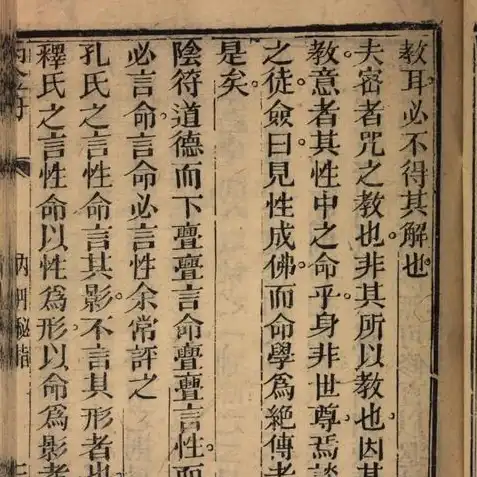 教耳必不得其解也
夫密者咒之教也。非其所以教也。因其
教意者其性中之命乎。身非世尊。焉談
之徒僉曰見性成佛。而命學爲絕傳者
是矣。
陰符道德而下亹亹言命亹亹言性。而
必言命。言命必言性余常評之
孔氏之言性命言其影。不言其形者也
釋氏之言性命以性爲形。以命爲影者
秘指